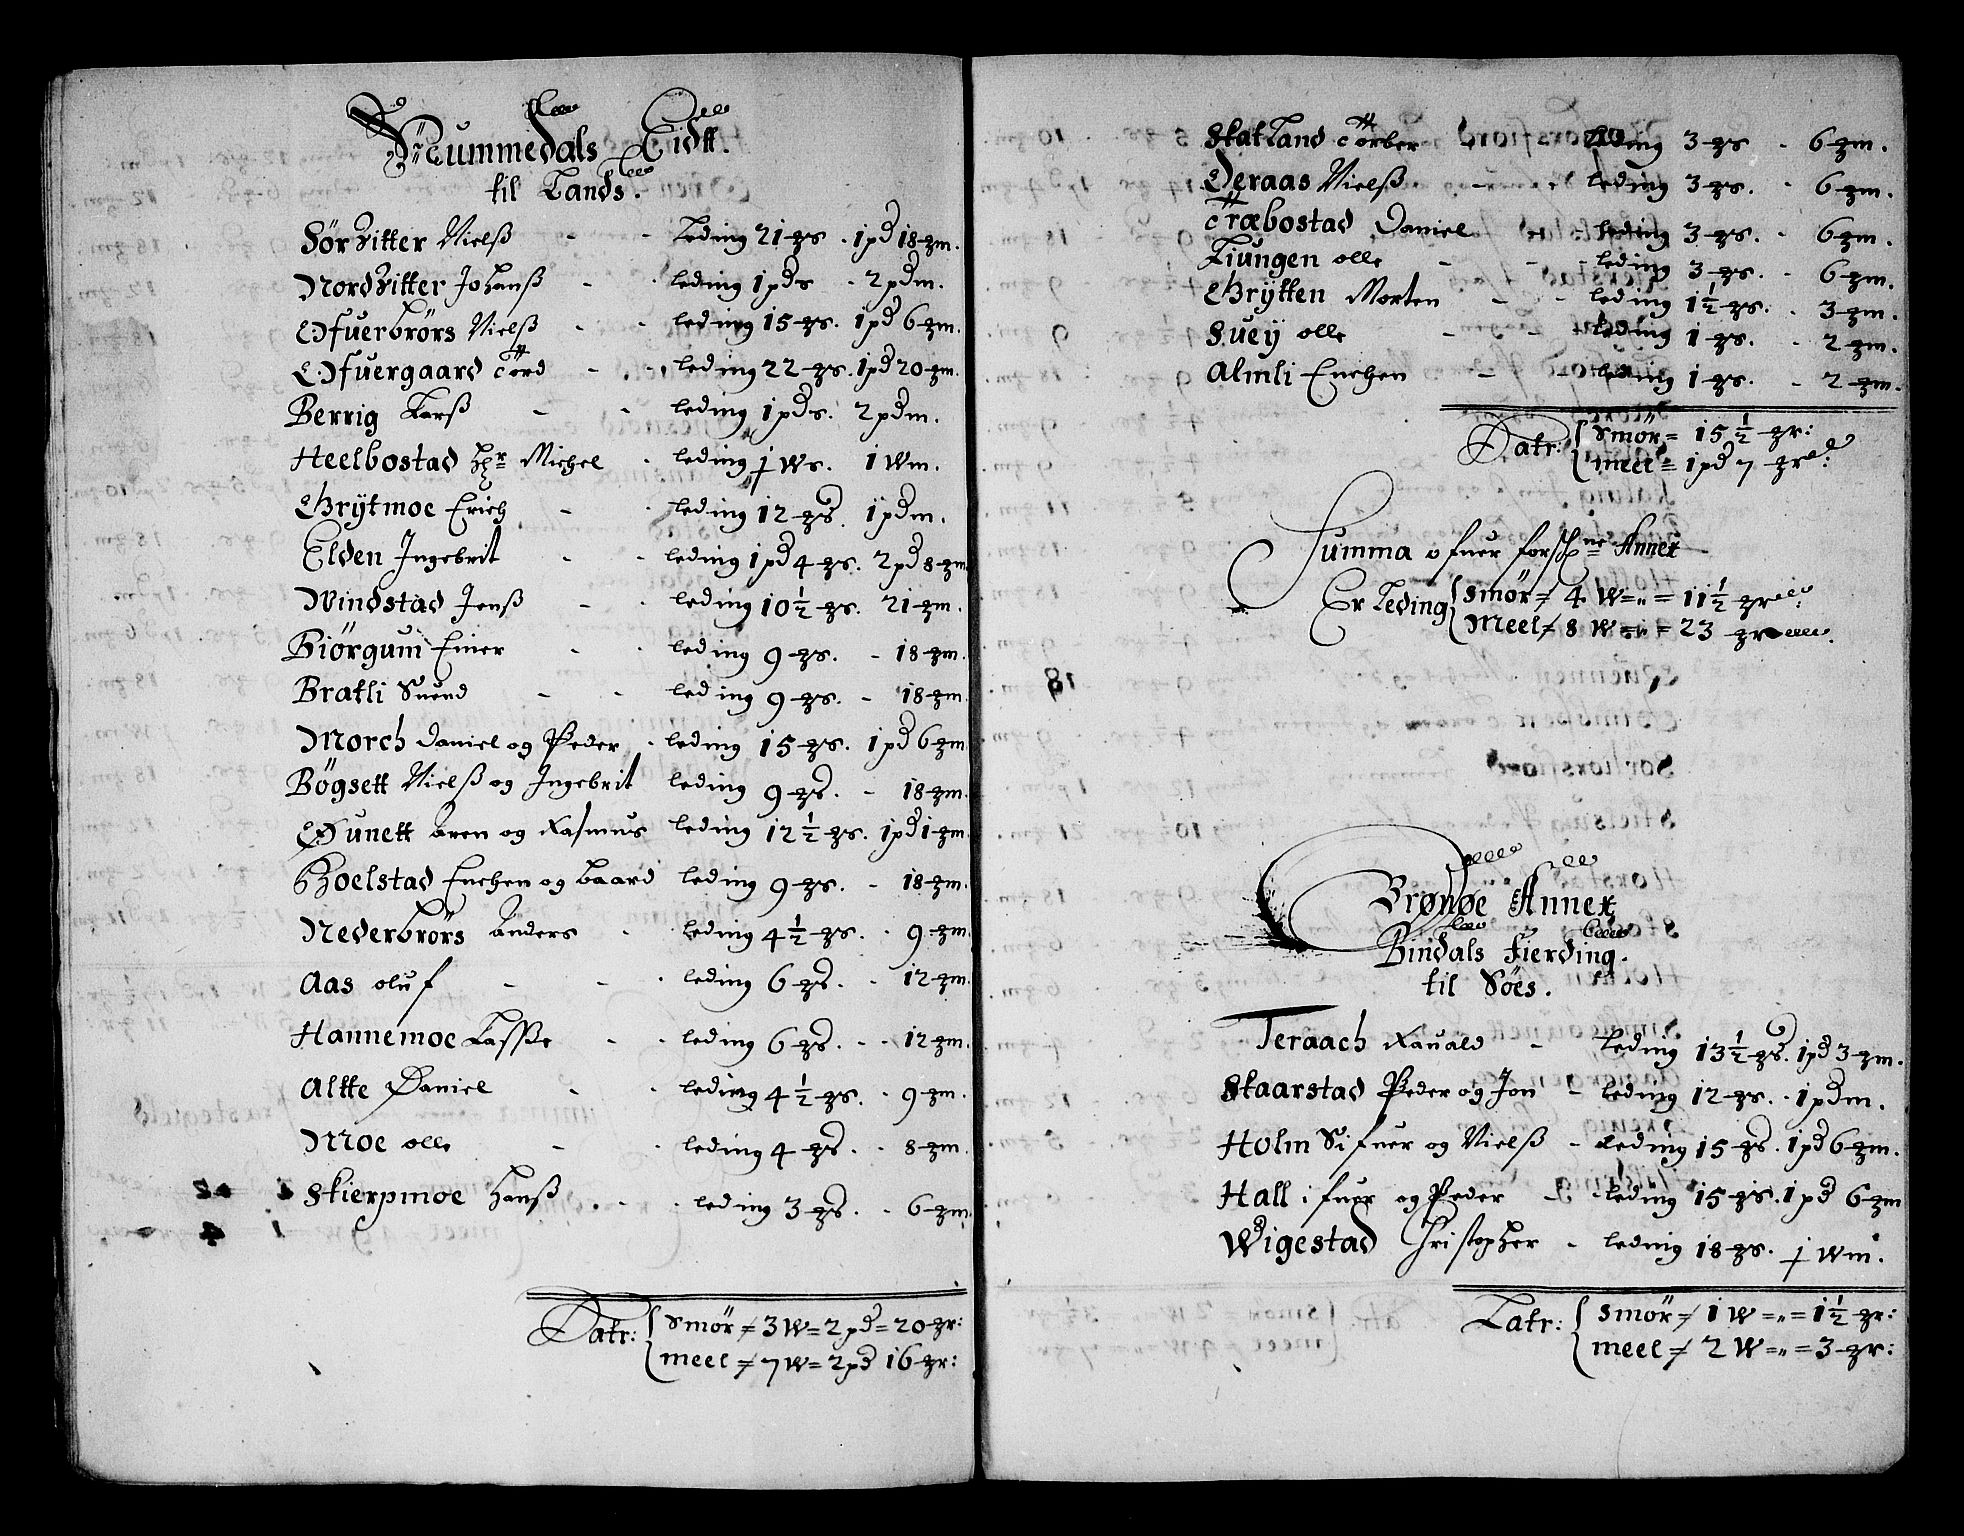 Nummedals Eidtt.
til Lands.
Sör Vitter Nielß - - Leding 21 ȝs . 1 pd 18 ȝm.
Nord Vitter Johanß - . leding 1 pd s - 2 pd m.
Ofuerbrörs Nielß - - leding 15 ȝs. 1 pd 6 ȝm.
Ofuergaard Tord - - . leding 22 ȝs. 1 pd 20 ȝm.
Berrig Larß - - leding 1 pd s. 2 pd m.
Heelbostad Hr Michel . leding j Ws. 1 Wm.
Grÿtmoe Erich - . leding 12 ȝs. 1 pd m.
Elden Ingebrit - - leding 1 pd 4 ȝs. 2 pd 8 ȝm
Windstad Jenß - - leding 10 ½ ȝs. 21 ȝm.
Biörgum Einer - - leding 9 ȝs. - 18 ȝm.
Bratli Suend - - leding 9 ȝs. - 18 ȝm.
Morch Daniel og Peder . leding 15 ȝs. 1 pd 6 ȝm
Bögsett Nielß og Ingebrit leding 9 ȝs. - 18 ȝm.
Øunett Aren og Rasmus leding 12 ½ ȝs. 1 pd 1 ȝm
Boelstad Enchen og Baard leding 9 ȝs. - 18 ȝm.
Nederbrörs Anders . leding 4 ½ ȝs. . 9 ȝm.
Aas oluf - - . leding 6 ȝs. . 12 ȝm.
Hannemoe Lasße - . leding 6 ȝs. - - 12 ȝm.
Altte Daniel - . leding 4 ½ ȝs. - 9 ȝm.
Moe olle - . leding 4 ȝs. - 8 ȝm.
Skierpmoe Hanß . - . leding 3 ȝs. - 6 ȝm
Latr: Smör = 3 W = 2 pd = 20 ȝr:
meel = 7 W = 2 pd 16 ȝr:
Statland Torber leding 3 ȝs - 6 ȝm.
Deraas Nielß - - leding 3 ȝs. - 6 ȝm.
Træbostad Daniel - leding 3 ȝs. - 6 ȝm.
Liungen olle - - - leding 3 ȝs. - 6 ȝm.
Grÿtten Morten - - leding 1 ½ ȝs. . 3 ȝm.
Sueÿ olle - - leding 1 ȝs. - 2 ȝm.
Almli Enchen - - leding 1 ȝs. - 2 ȝm.
Latr: Smör = 15 ½ ȝr:
meel = 1 pd 7 ȝr:
Summa ofuer forschne Annex
Er Leding Smör = 4 W = „ = 11 ½ ȝr:
Meel = 8 W = „ = 23 ȝr.
Brønøe Annex
Bindals Fierding.
til Söes.
Teraach Rauald - leding 13 ½ ȝs. 1 pd 3 ȝm.
Staarstad Peder og Jon - leding 12 ȝs. . 1 pd m.
Holm Sifuer og Nielß - leding 15 ȝs. 1 pd 6 ȝm.
Hall ifuer og Peder - leding 15 ȝs. 1 pd 6 ȝm
Wigestad Christopher - leding 18 ȝs. j Wm.
Latr: Smör = 1 W = „ = 1 ½ ȝr:
meel = 2 W = „ = 3 ȝr: